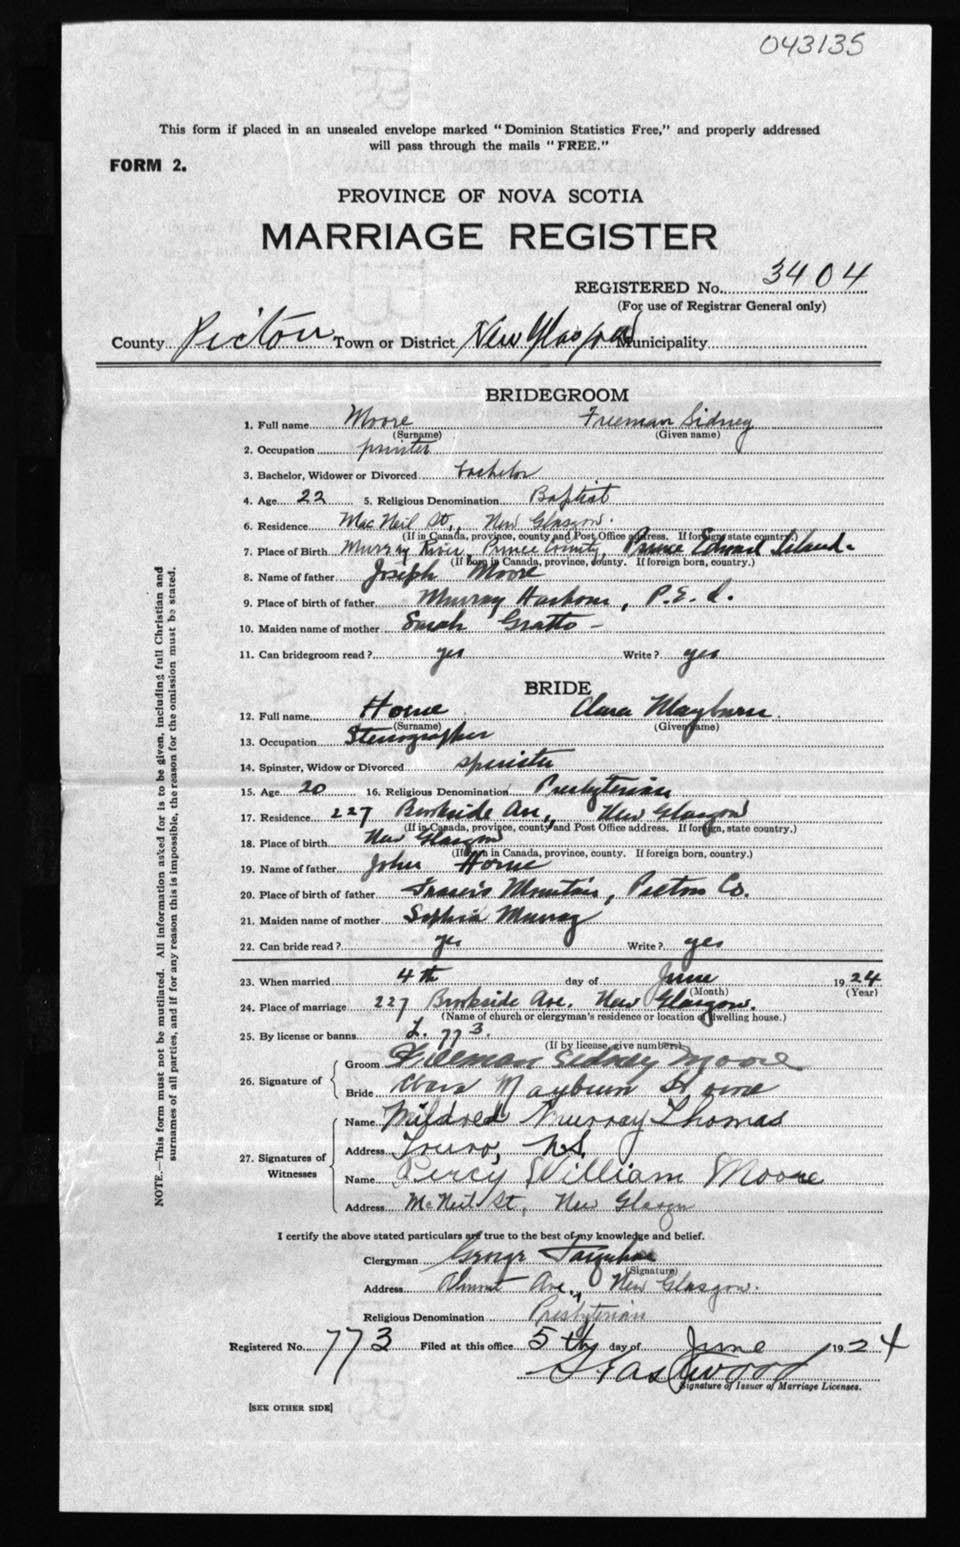 043135
This form if placed in an unsealed envelope marked "Dominion Statistics Free," and properly addressed
will pass through the mails "FREE."
FORM 2.
PROVINCE OF NOVA SCOTIA
MARRIAGE REGISTER
REGISTERED No. 3404
(For use of Registrar General only)
County Pictou Town or District New Glasgow Municipality
BRIDEGROOM
1. Full name Moore Freeman Sidney
(Surname) (Given name)
2. Occupation printer
3. Bachelor, Widower or Divorced bachelor
4. Age 22 5. Religious Denomination Baptist
6. Residence MacNeil St., New Glasgow.
(If in Canada, province, county and Post Office address. If foreign, state country.)
7. Place of Birth Murray River, Prince County, Prince Edward Island.
(If born in Canada, province, county. If foreign born, country.)
8. Name of father Joseph Moore
9. Place of birth of father Murray Harbour, P.E.I.
10. Maiden name of mother Sarah Gratto -
11. Can bridegroom read? yes Write? yes
BRIDE
12. Full name Horne Clara Mayburn
(Surname) (Given name)
13. Occupation Stenographer
14. Spinster, Widow or Divorced spinster
15. Age 20 16. Religious Denomination Presbyterian
17. Residence 227 Brookside Ave., New Glasgow
(If in Canada, province, county and Post Office address. If foreign, state country.)
18. Place of birth New Glasgow
(If born in Canada, province, county. If foreign born, country.)
19. Name of father John Horne
20. Place of birth of father Frasers Mountain, Pictou Co.
21. Maiden name of mother Sophia Murray
22. Can bride read? yes Write? yes
23. When married 4th day of June 1924
(Month) (Year)
24. Place of marriage 227 Brookside Ave. New Glasgow.
(Name of church or clergyman's residence or location of dwelling house.)
25. By license or banns L. 773.
(If by license, give number)
26. Signature of Groom Freeman Sidney Moore
Bride Clara Mayburn Horne
27. Signatures of Witnesses Name Mildred Murray Thomas
Address Truro, N.S.
Name Percy William Moore
Address McNeil St, New Glasgow
I certify the above stated particulars are true to the best of my knowledge and belief.
Clergyman George Farquhar
(Signature)
Address Almont Ave., New Glasgow.
Religious Denomination Presbyterian
Registered No. 773 Filed at this office 5th day of June 1924
Signature of Issuer of Marriage Licenses.
[SEE OTHER SIDE]
NOTE.—This form must not be mutilated. All information asked for is to be given, including full Christian and
surnames of all parties, and if for any reason this is impossible, the reason for the omission must be stated.